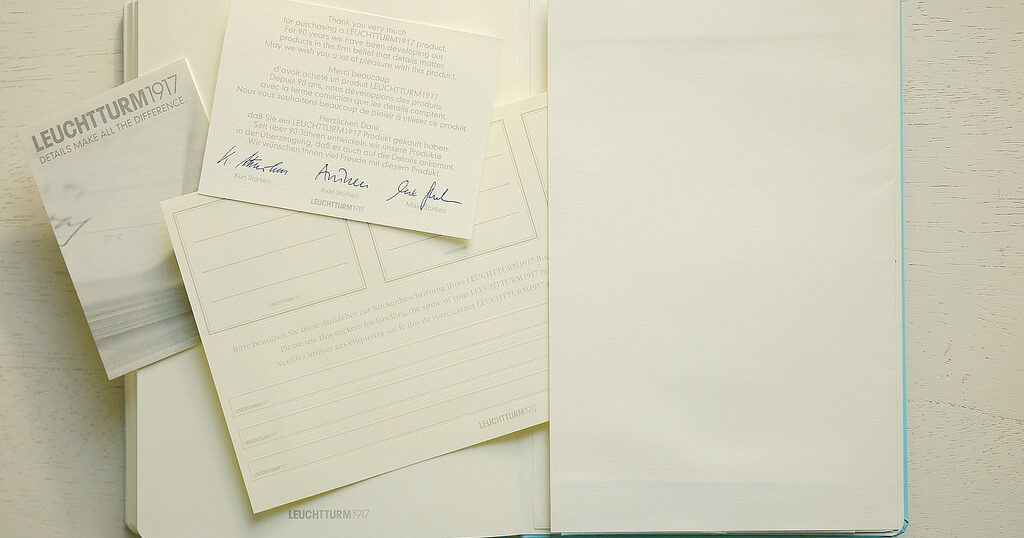 LEUCHTTURM1917
DETAILS MAKE ALL THE DIFFERENCE.
Thank you very much
for purchasing a LEUCHTTURM1917 product.
For 90 years we have been developing our
products in the firm belief that details matter.
May we wish you a lot of pleasure with this product.
Merci beaucoup
d'avoir acheté un produit LEUCHTTURM1917.
Depuis 90 ans, nous développons des produits
avec la ferme conviction que les détails comptent.
Nous vous souhaitons beaucoup de plaisir à utiliser ce produit.
Herzlichen Dank,
daß Sie ein LEUCHTTURM1917 Produkt gekauft haben.
Seit über 90 Jahren entwickeln wir unsere Produkte
in der Überzeugung, daß es auch auf die Details ankommt.
Wir wünschen Ihnen viel Freude mit diesem Produkt.
Kurt Stürken
Axel Stürken
Max Stürken
LEUCHTTURM1917
LEUCHTTURM1917
LEUCHTTURM1917
Bitte benutzen Sie diese Aufkleber zur Rückenbeschriftung Ihres LEUCHTTURM1917
Please use this stickers for labelling the spine of your LEUCHTTURM1917
Veuillez utiliser ces étiquettes sur le dos de votre carnet LEUCHTTURM1917
LEUCHTTURM1917
LEUCHTTURM1917
LEUCHTTURM1917
LEUCHTTURM1917
LEUCHTTURM1917